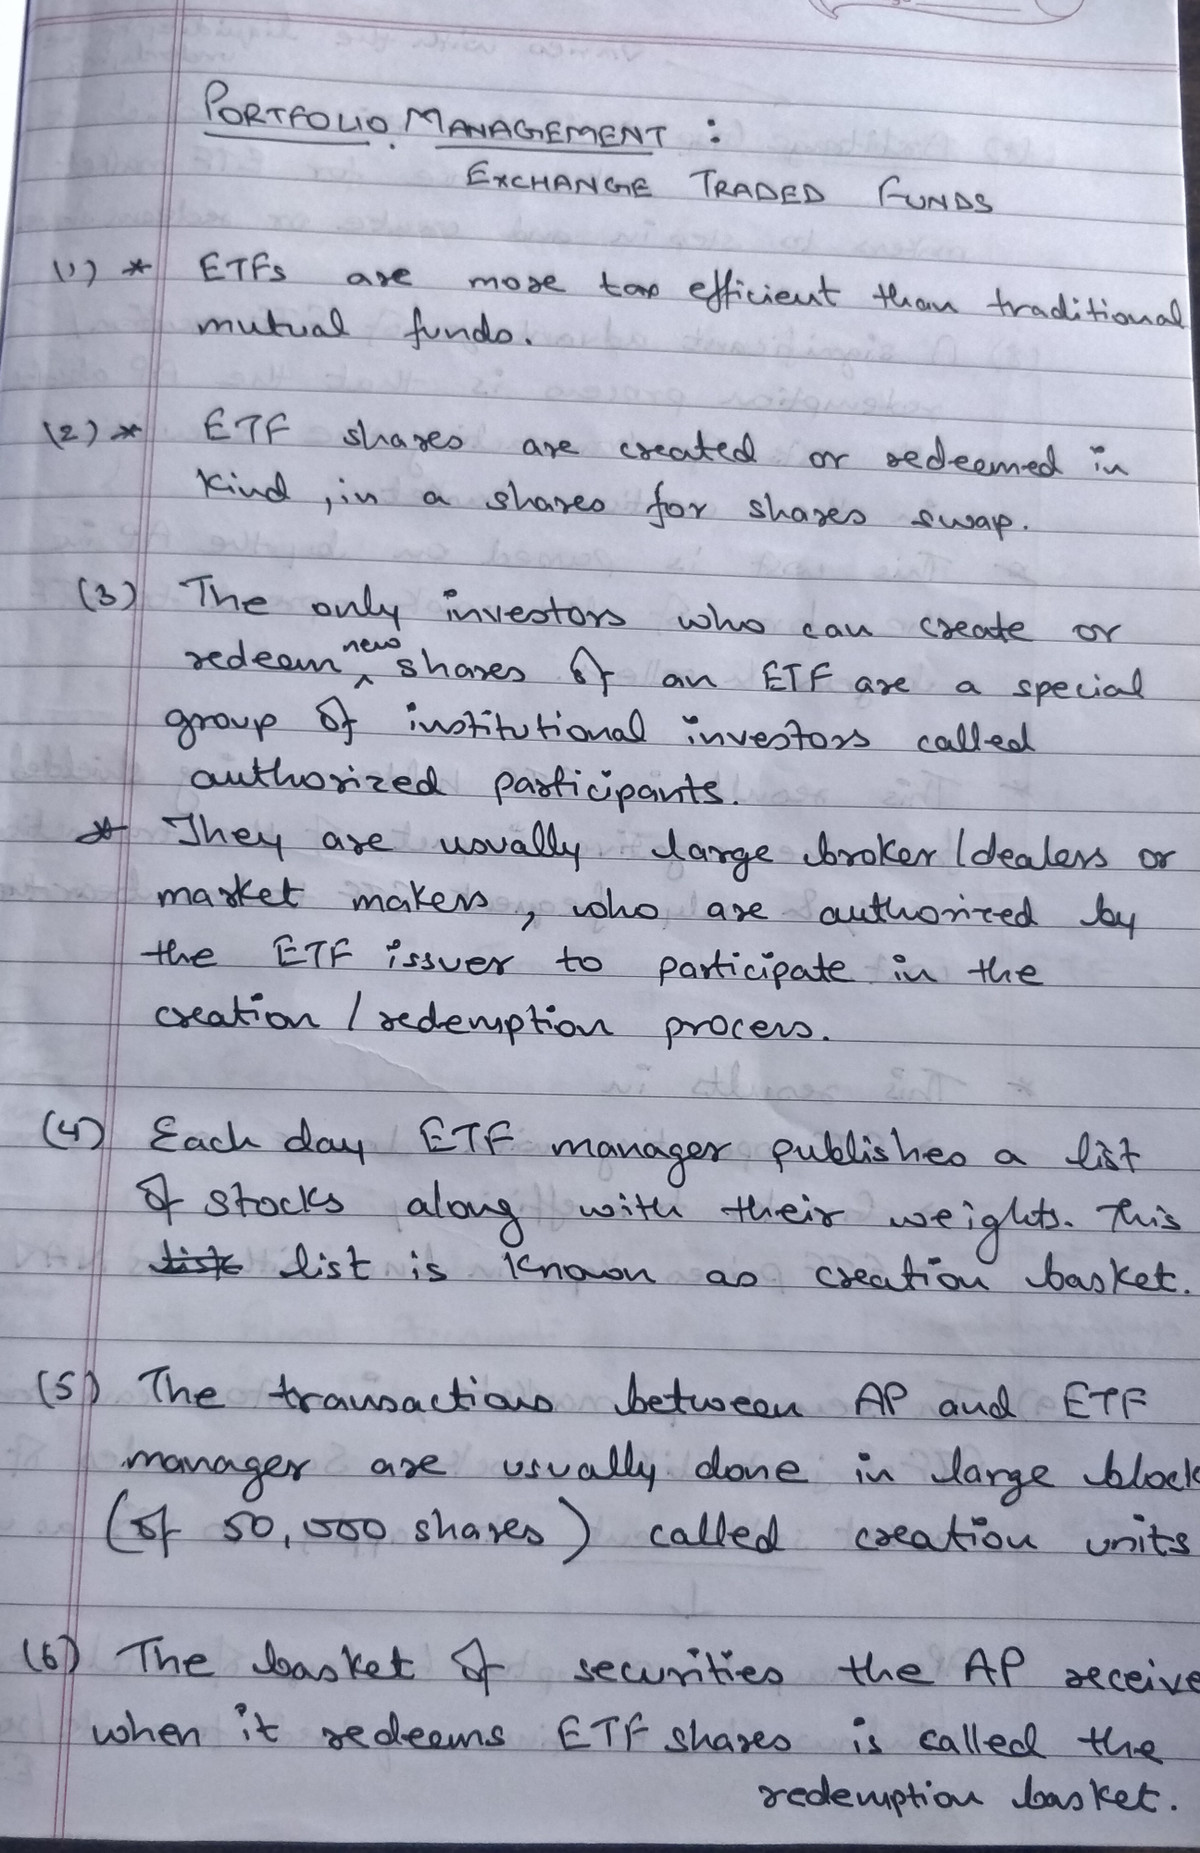 PORTFOLIO MANAGEMENT :
EXCHANGE TRADED FUNDS
(1) * ETFs are more tax efficient than traditional
mutual funds.
(2) * ETF shares are created or redeemed in
kind, in a shares for shares swap.
(3) The only investors who can create or
redeem new shares of an ETF are a special
group of institutional investors called
authorized participants.
* They are usually large broker/dealers or
market makers, who are authorized by
the ETF issuer to participate in the
creation / redemption process.
(4) Each day ETF manager publishes a list
of stocks along with their weights. This
list list is known as creation basket.
(5) The transactions between AP and ETF
manager are usually done in large block
(of 50,000 shares) called creation units
(6) The basket of securities the AP receive
when it redeems ETF shares is called the
redemption basket.